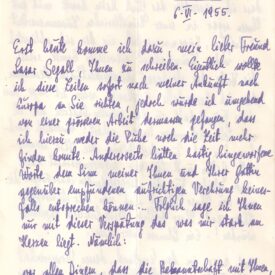 6-VI-1955.
Erst heute komme ich dazu, mein lieber Freund
Lasar Segall, Ihnen zu schreiben. Eigentlich wollte
ich diese Zeilen sofort nach meiner Ankunft nach
Europa an Sie richten, jedoch wurde ich umgehend
von einer grösseren Arbeit dermassen gefangen, dass
ich hierzu weder die Ruhe noch die Zeit mehr
finden konnte. Anderseits hätten hastig hingeworfene
Worte dem Sinn meiner Ihnen und Ihrer Gattin
gegenüber empfundenen aufrichtigen Verehrung keines-
falls entsprechen können... Folglich sage ich Ihnen
nur mit dieser Verspätung das was mir stark am
Herzen liegt. Nämlich:
vor allen Dingen, dass die Bekanntschaft mit Ihnen,